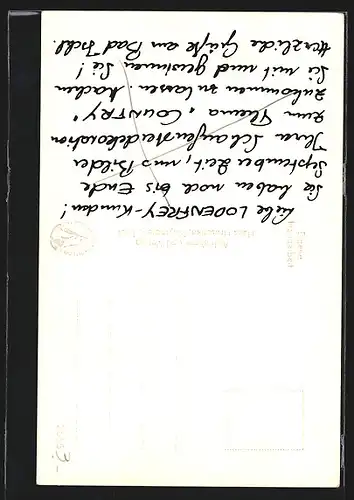 Liebe LODENFREY-Kunden!
Sie haben noch bis Ende
September Zeit, uns Bilder
Ihrer Schaufensterdekoration
zum Thema "COUNTRY"
zukommen zu lassen. Machen
Sie mit und gewinnen Sie!
Herzliche Grüße am Bad Ischl.